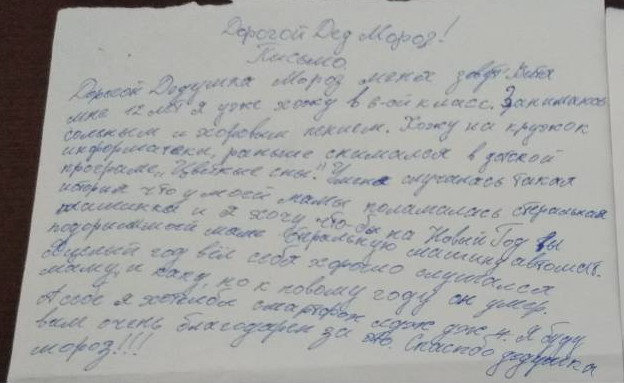 Дорогой Дед Мороз!
Письмо
Дорогой Дедушка Мороз меня зовут Витя
мне 12 лет я уже хожу в 6-ой класс. Занимаюсь
сольным и хоровым пением. Хожу на кружок
информатеки, раньше снимался в детской
програме „Цветные сны." У меня случилась такая
история что у моей мамы поламалась стиральная
машинка и я хочу что-бы на Новый Год вы
подорили моей маме стиральную машину автомат.
Я целый год вёл себя хорошо слушался
маму, и папу, но к новому году он умер.
А себе я хотелбы смартфон лдж дж 4. Я буду
вам очень благодарен за это. Спасибо дедушка
мороз!!!